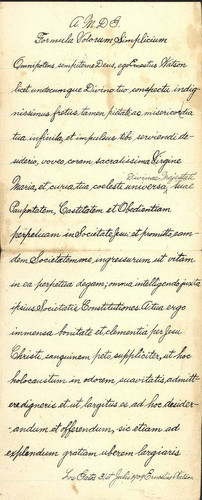 A. M. D. G.
Formula Votorum Simplicium
Omnipotens, sempiterne Deus, ego Ernestus Watson
licet undecunque Divino tuo conspectu indig-
nissimus, fretus tamen, pietate ac misericordia
tua infinita, et impulsus tibi serviendi de-
siderio, voveo, coram sacratissima Virgine
Divinae Majestati
Maria, et curia tua coelesti universa, tuae
Paupertatem, Castitatem et Obedientiam
perpetuam in Societate Jesu: et promitto, eam-
dem Societatem me, ingressurum ut vitam
in ea perpetuo degam; omnia intelligendo juxta
ipsius Societatis Constitutiones. A tua ergo
immensa bonitate et, clementia per Jesu
Christi, sanguinem, peto, suppliciter, ut hoc
holocaustum in odorem suavitatis, admitt-
ere digneris et ut, largitus es, ad hoc desider-
andum et offerendum, sic etiam ad
explendum gratiam uberem largiaris.
Los Gatos 31st Julii 1909 Ernestus Watson